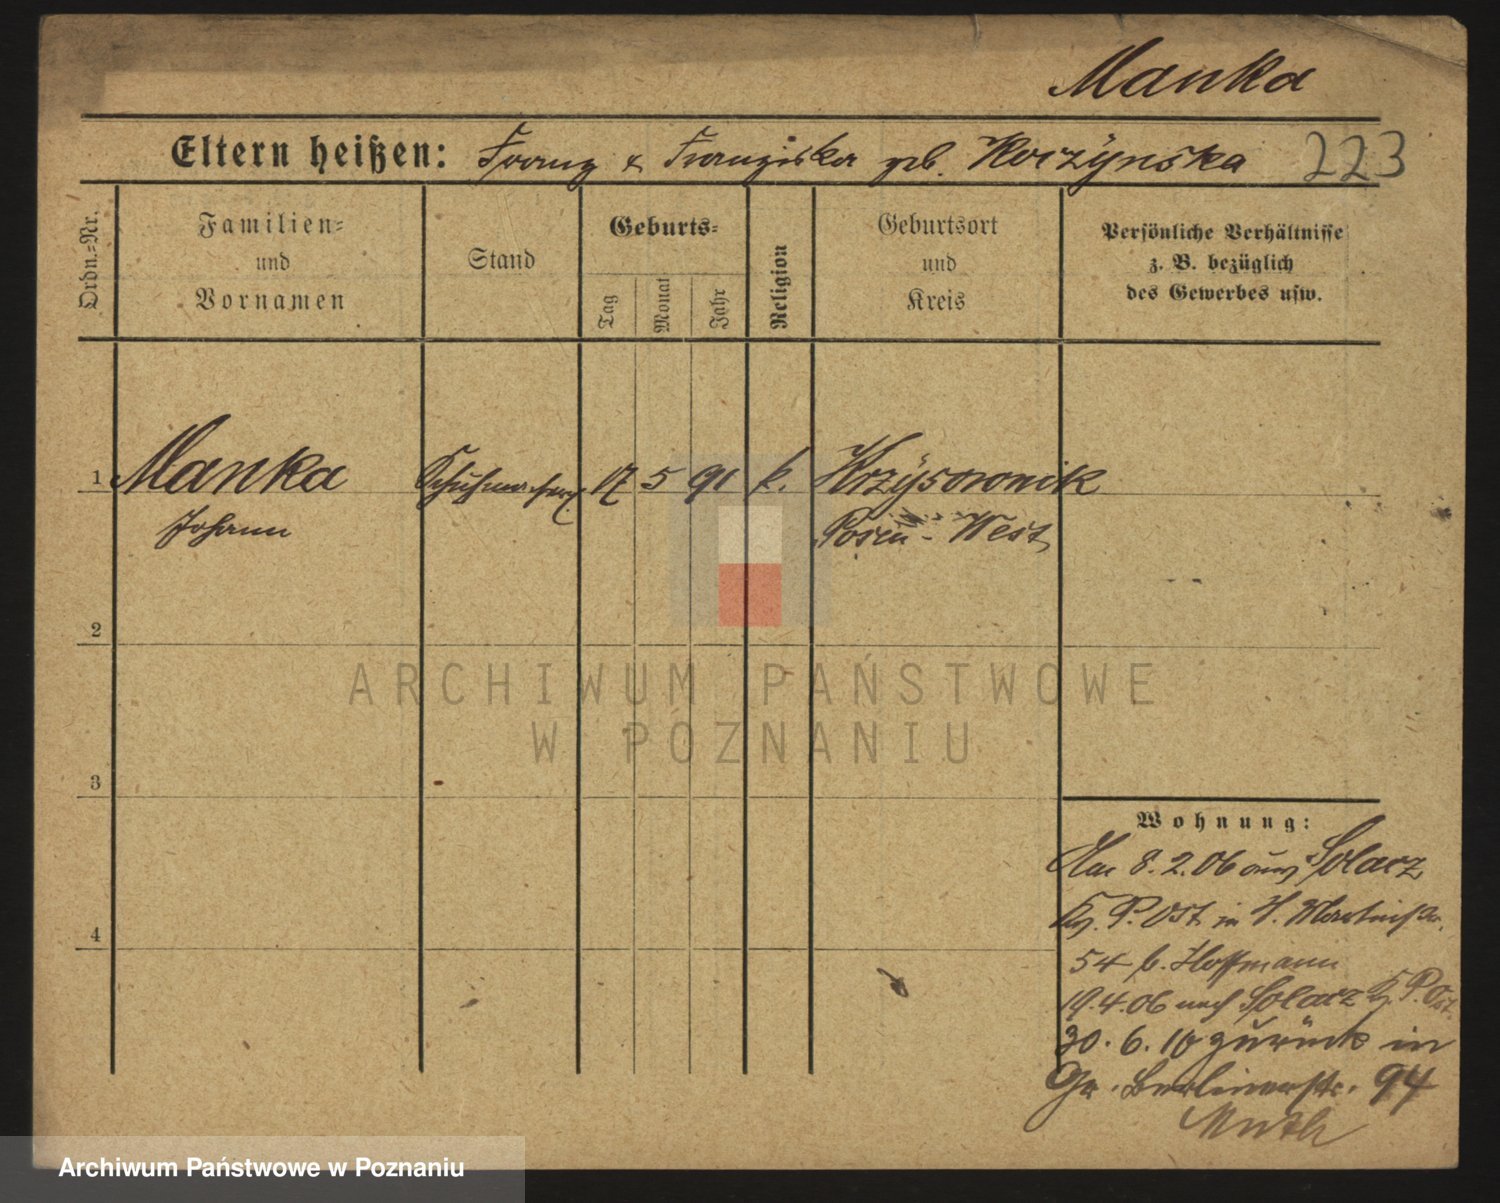 Manka
Eltern heißen: Franz & Franziska geb. Koczÿnska 223
Ordn.=Nr.
Familien=
und
Vornamen
Stand
Geburts=
Tag
Monat
Jahr
Religion
Geburtsort
und
Kreis
Persönliche Verhältnisse
z. B. bezüglich
des Gewerbes usw.
1 Manka 17 5 91 k.
Johann Posen - West
2
ARCHIWUM PAŃSTWOWE
W POZNANIU
3
Wohnung:
8.2.06 aus Solacz
Kr. P. Ost in St. Martinstr.
54 b. Hoffmann
19.4.06 nach Solacz Kr. P. Ost.
4
30.6.10 zurück in
Gr. Berlinerstr. 94
Archiwum Państwowe w Poznaniu